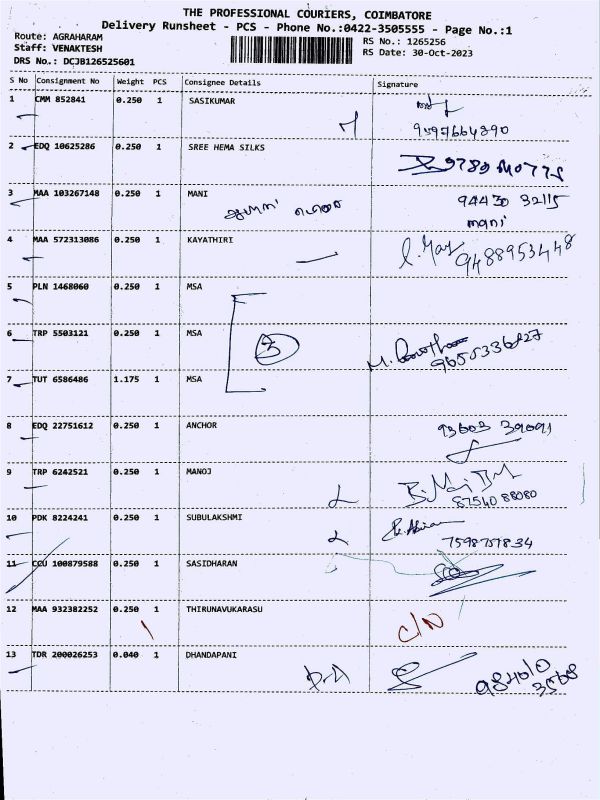 THE PROFESSIONAL COURIERS, COIMBATORE
Delivery Runsheet - PCS - Phone No.:0422-3505555 - Page No.:1
Route: AGRAHARAM
Staff: VENAKTESH
DRS No.: DCJB126525601
RS No.: 1265256
RS Date: 30-Oct-2023
S No Consignment No Weight PCS Consignee Details Signature
1 CMM 852841 0.250 1 SASIKUMAR
2 EDQ 10625286 0.250 1 SREE HEMA SILKS
3 MAA 103267148 0.250 1 MANI
94430 32115
mani
4 MAA 572313086 0.250 1 KAYATHIRI
9488953448
5 PLN 1468060 0.250 1 MSA
6 TRP 5503121 0.250 1 MSA
3
7 TUT 6586486 1.175 1 MSA
8 EDQ 22751612 0.250 1 ANCHOR
93603 39091
9 TRP 6242521 0.250 1 MANOJ
87540 88080
10 PDK 8224241 0.250 1 SUBULAKSHMI
7598757834
11 CCU 100879588 0.250 1 SASIDHARAN
12 MAA 932382252 0.250 1 THIRUNAVUKARASU
C/N
13 TDR 200026253 0.040 1 DHANDAPANI